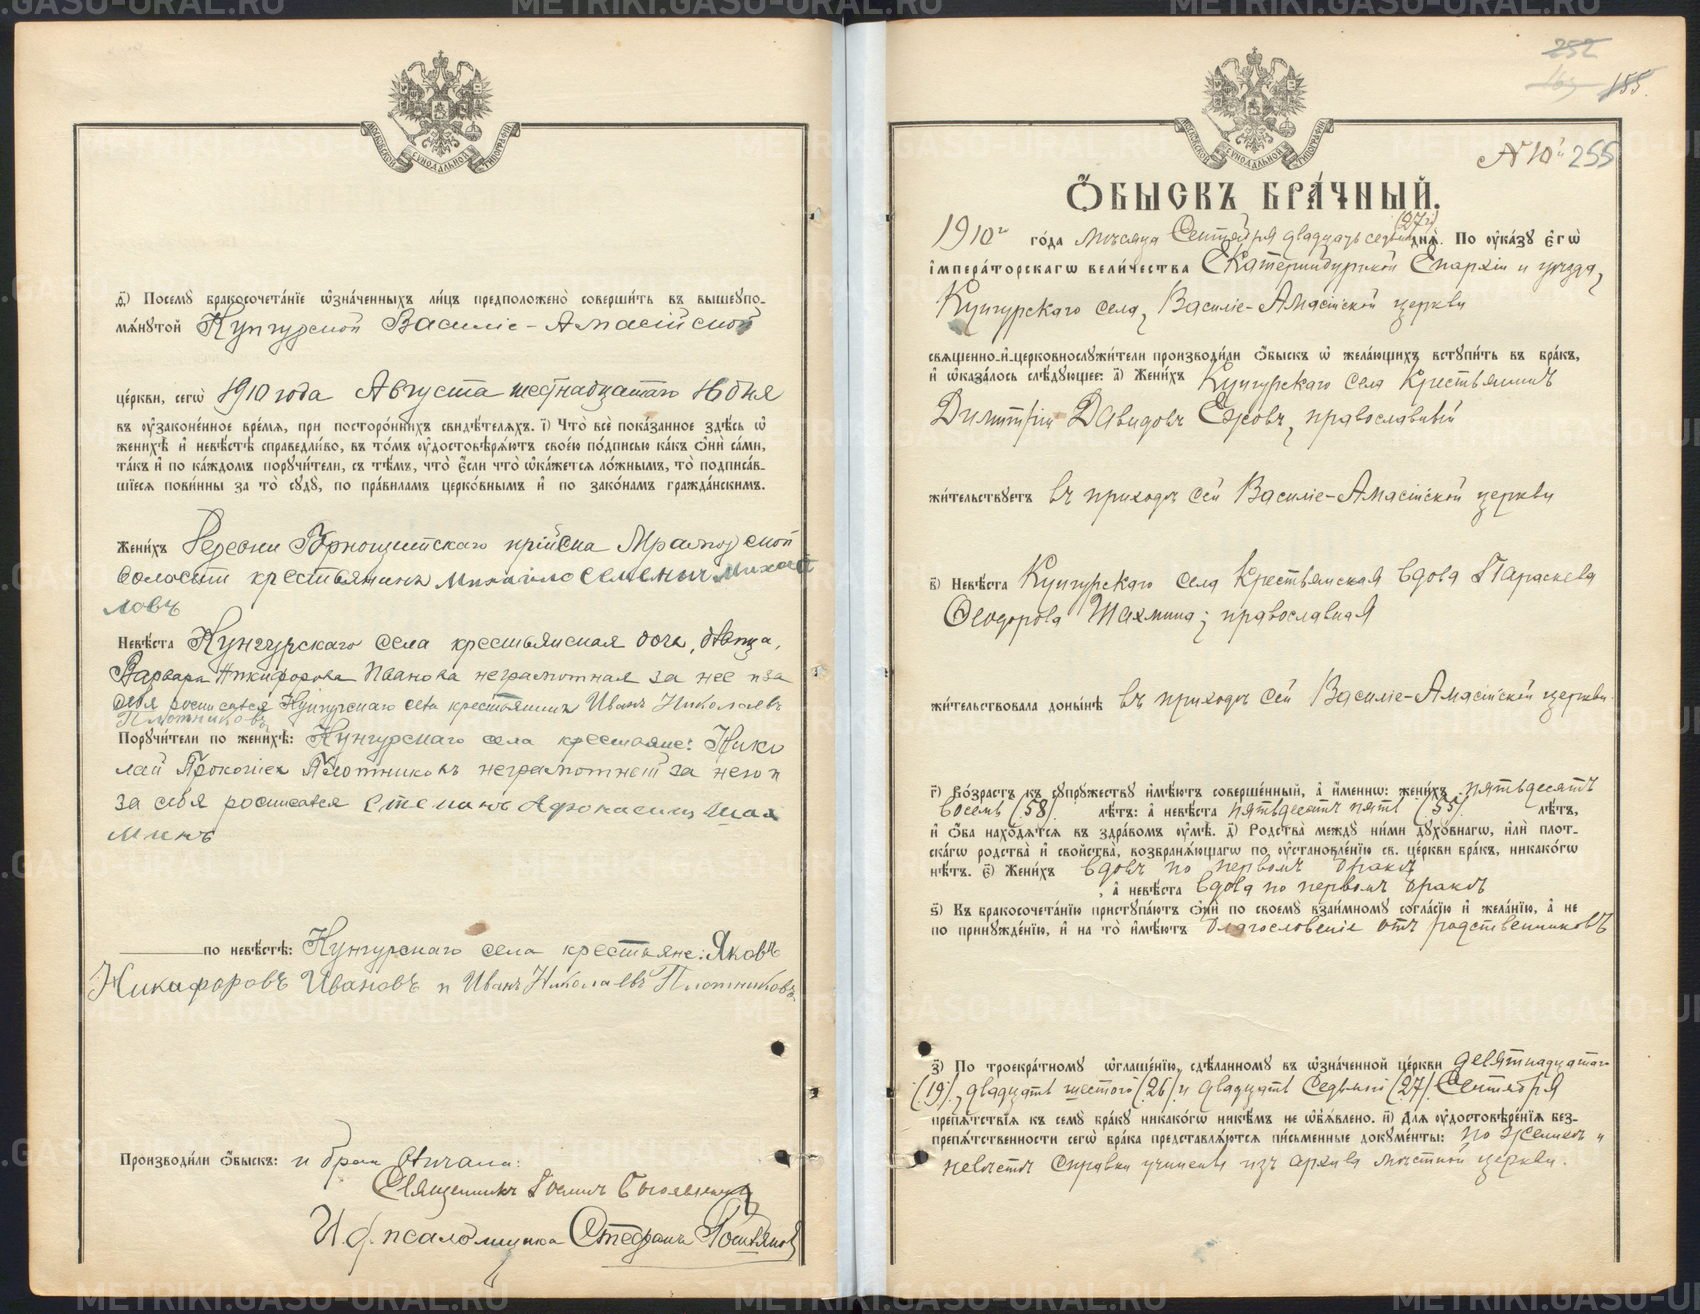 МОСКОВСКОЙ СѴНОДАЛЬНОЙ ТИПОГРАФІИ
д҃) Посемꙋ̀ бракосочета́нїе ѡ҆зна́ченныхъ ли́цъ предположено̀ соверши́ть въ вышеꙋпо-
мѧ́нꙋтой Кунгурской Василіе-Амасійской
це́ркви, сегѡ̀ 1910 года Августа шестнадцатаго 16 дня
въ ᲂу҆зако́ненное вре́мѧ, при посторо́ннихъ свидѣ́телѧхъ. і҃) Что̀ всѐ пока́занное здѣ́сь ѡ҆
женихѣ̀ и҆ невѣ́стѣ справедли́во, въ то́мъ ᲂу҆достовѣрѧ́ютъ свое́ю по́дписью ка́къ ѻ҆нѝ са́ми,
та́къ и҆ по ка́ждомъ порꙋчи́тели, съ тѣ́мъ, что̀ є҆́сли что̀ ѡ҆ка́жетсѧ ло́жнымъ, то̀ подписа́в-
шїесѧ пови́нны за то̀ сꙋдꙋ̀, по пра́виламъ церко́внымъ и҆ по зако́намъ гражда́нскимъ.
Жени́хъ Деревни Горнощитскаго прійска Мраморской
волости крестьянинъ Михаило Семеныч Михай
ловъ
Невѣ́ста Кунгурскаго села крестьянская дочь, девица,
Варвара Никифорова Иванова неграмотная за нее и за
себя росписался Кунгурскаго села крестьянинъ Иванъ Николаевъ
Плотниковъ
Порꙋчи́тели по женихѣ̀: Кунгурскаго села крестьяне: Нико
лай Прокопіев Плотниковъ неграмотней за него и
за себя росписался Степанъ Афонасеиц Шах
минъ
по невѣ́стѣ: Кунгурскаго села крестьяне: Яковъ
Никифоровъ Ивановъ и Иванъ Николаевъ Плотниковъ.
Производи́ли ѻ҆́быскъ: и бракъ вѣнчали:
Священникъ
И. д. псаломщика Стефанъ
252
185.
МОСКОВСКОЙ СѴНОДАЛЬНОЙ ТИПОГРАФІИ
№ 10й 255
Ѻ҆́БЫСКЪ БРА́ЧНЫЙ.
1910г го́да мѣсяца Сентября двадцать седьмаго (27го) днѧ̀. По ᲂу҆ка́зꙋ є҆гѡ̀
і҆мпера́торскагѡ вели́чества Екатеринбургской Епархіи и уѣзда,
Кунгурскаго села, Василіе-Амасійской церкви
свѧще́нно-и҆-церковнослꙋжи́тели производи́ли ѻ҆́быскъ ѡ҆ жела́ющихъ встꙋпи́ть въ бра́къ,
и҆ ѡ҆каза́лось слѣ́дꙋющее: а҃) Жени́хъ Кунгурскаго села крестьянинъ
Димитрій Давидовъ Ежовъ, православный
жи́тельствꙋетъ въ приходѣ сей Василіе-Амасійской церкви
в҃) Невѣ́ста Кунгурскаго села крестьянская вдова Параскева
Ѳеодорова Шахмина; православная
жи́тельствовала доны́нѣ въ приходѣ сей Василіе-Амасійской церкви.
г҃) Во́зрастъ къ сꙋпрꙋ́жествꙋ и҆мѣ́ютъ соверше́нный, а҆ и҆́меннѡ: жени́хъ пятьдесятъ
восемь (58) лѣ́тъ: а҆ невѣ́ста пятьдесятъ пять (55) лѣ́тъ,
и҆ ѻ҆́ба нахо́дѧтсѧ въ здра́вомъ ᲂу҆мѣ̀. д҃) Родства̀ ме́ждꙋ ни́ми дꙋхо́внагѡ, и҆лѝ пло́т-
скагѡ родства̀ и҆ сво́йства, возбранѧ́ющагѡ по ᲂу҆становле́нїю св. це́ркви бра́къ, никако́гѡ
нѣ́тъ. є҃) Жени́хъ вдовъ по первомъ бракѣ
, а҆ невѣ́ста вдова по первомъ бракѣ
ѕ҃) Къ бракосочета́нїю пристꙋпа́ютъ ѻ҆нѝ по своемꙋ̀ взаи́мномꙋ согла́сїю и҆ жела́нїю, а҆ не
по принꙋжде́нїю, и҆ на то̀ и҆мѣ́ютъ благословеніе отъ родственниковъ
з҃) По троекра́тномꙋ ѡ҆глаше́нїю, сдѣ́ланномꙋ въ ѡ҆зна́ченной це́ркви девятнадцатаго
(19), двадцать шестого (26) и двадцать седьмого (27) Сентября
препѧ́тствїѧ къ семꙋ̀ бра́кꙋ никако́гѡ никѣ́мъ не ѡ҆б̾ѧ́влено. и҃) Для ᲂу҆достовѣре́нїѧ без-
препѧ́тственности сегѡ̀ бра́ка представлѧ́ютсѧ пи́сьменные докꙋме́нты: по женихѣ и
невѣстѣ справки учинены изъ архива мѣстной церкви.